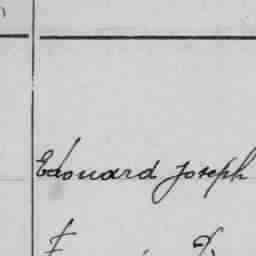 Edouard Joseph